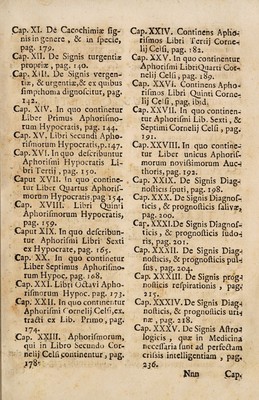 Cap. XI. De Cacochimiæ sig-
nis in genere, & in specie,
pag. 179.
Cap. XII. De Signis turgentiæ
propriæ, pag. 140.
Cap. XIII. De Signis vergen-
tiæ, & urgentiæ, & ex quibus
simpthoma dignoscitur, pag.
142.
Cap. XIV. In quo continetur
Liber Primus Aphorismo-
rum Hypocratis, pag. 144.
Cap. XV. Libri Secundi Apho-
rismorum Hypocratis, p. 147.
Cap. XVI. In quo describuntur
Aphorismi Hypocratis Li-
bri Tertii, pag. 150.
Caput XVII. In quo contine-
tur Liber Quartus Aphoris-
morum Hypocratis, pag 154.
Cap. XVIII. Libri Quinti
Aphorismorum Hypocratis,
pag. 159.
Caput XIX. In quo describun-
tur Aphorismi Libri Sexti
ex Hypocrate, pag. 165.
Cap. XX. In quo continetur
Liber Septimus Aphorismo-
rum Hypoc. pag. 168.
Cap. XXI. Libri Octavi Apho-
rismorum Hypoc. pag. 173.
Cap. XXII. In quo continentur
Aphorismi Cornelij Celsi, ex-
tracti ex Lib. Primo, pag.
174.
Cap. XXIII. Aphorismorum,
qui in Libro Secundo Cor-
nelij Celsi continentur, pag.
178.
Cap. XXIV. Continens Apho-
rismos Libri Tertij Corne-
lij Celsi, pag. 182.
Cap. XXV. In quo continentur
Aphorismi Libri Quarti Cor-
nelij Celsi, pag. 189.
Cap. XXVI. Continens Apho-
rismos Libri Quinti Corne-
lij Celsi, pag. ibid.
Cap. XXVII. In quo continen-
tur Aphorismi Lib. Sexti, &
Septimi Cornelij Celsi, pag.
191.
Cap. XXVIII. In quo contine-
tur Liber unicus Aphoris-
morum novissimorum Auc-
thoris, pag. 192.
Cap. XXIX. De Signis Diag-
nosticis sputi, pag. 198.
Cap. XXX. De Signis Diagnos-
ticis, & prognosticis salivæ,
pag. 200.
Cap. XXXI. De Signis Diagnos-
ticis, & prognosticis sudo-
ris, pag. 201.
Cap. XXXII. De Signis Diag-
nosticis, & prognosticis pul-
sus, pag. 204.
Cap. XXXIII. De Signis prog-
nosticis respirationis, pag.
215.
Cap. XXXIV. De Signis Diag-
nosticis, & prognosticis uri-
næ, pag. 218.
Cap. XXXV. De Signis Astro-
logicis, quæ in Medicina
necessaria sunt ad perfectam
crisis intelligentiam, pag.
236.
Nnn Cap.